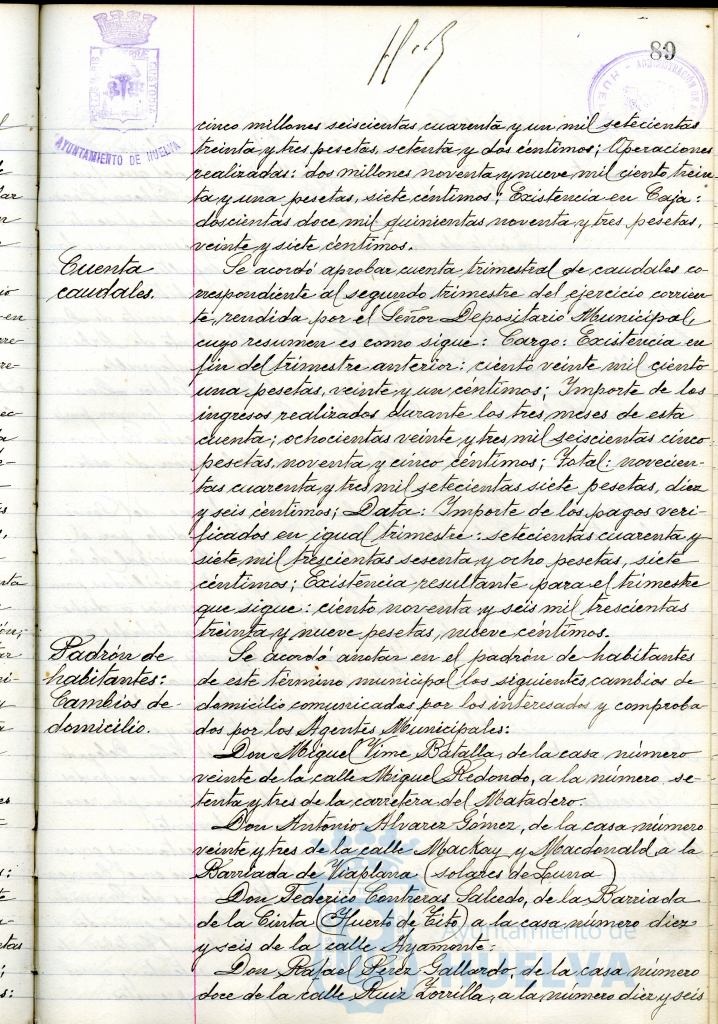 H-3
89
AYUNTAMIENTO DE HUELVA
cinco millones seiscientas cuarenta y un mil setecientas
treinta y tres pesetas, setenta y dos céntimos; Operaciones
realizadas: dos millones noventa y nueve mil ciento trein-
ta y una pesetas, siete céntimos; Existencia en Caja:
doscientas doce mil quinientas noventa y tres pesetas,
veinte y siete céntimos.
Cuenta
caudales.
Se acordó aprobar cuenta trimestral de caudales co-
rrespondiente al segundo trimestre del ejercicio corrien-
te, rendida por el Señor Depositario Municipal,
cuyo resumen es como sigue: Cargo: Existencia en
fin del trimestre anterior: ciento veinte mil ciento
una pesetas, veinte y un céntimos; Importe de los
ingresos realizados durante los tres meses de esta
cuenta; ochocientas veinte y tres mil seiscientas cinco
pesetas, noventa y cinco céntimos; Total: novecien-
tas cuarenta y tres mil setecientas siete pesetas, diez
y seis céntimos; Data: Importe de los pagos veri-
ficados en igual trimestre: setecientas cuarenta y
siete mil trescientas sesenta y ocho pesetas, siete
céntimos; Existencia resultante para el trimestre
que sigue: ciento noventa y seis mil trescientas
treinta y nueve pesetas, nueve céntimos.
Padrón de
habitantes:
Cambios de
domicilio.
Se acordó anotar en el padrón de habitantes
de este término municipal los siguientes cambios de
domicilio comunicados por los interesados y comproba-
dos por los Agentes Municipales:
Don Miguel Vime Batalla, de la casa número
veinte de la calle Miguel Redondo, a la número se-
tenta y tres de la carretera del Matadero.
Don Antonio Alvarez Gómez, de la casa número
veinte y tres de la calle Mackay y Macdonald, a la
Barriada de Viaplana (solares de Luna)
Don Federico Contreras Salcedo, de la Barriada
de la Cinta (Huerto de Tito) a la casa número diez
y seis de la calle Ayamonte:
Don Rafael Pérez Gallardo, de la casa número
doce de la calle Ruiz Zorrilla, a la número diez y seis
Ayuntamiento de
HUELVA